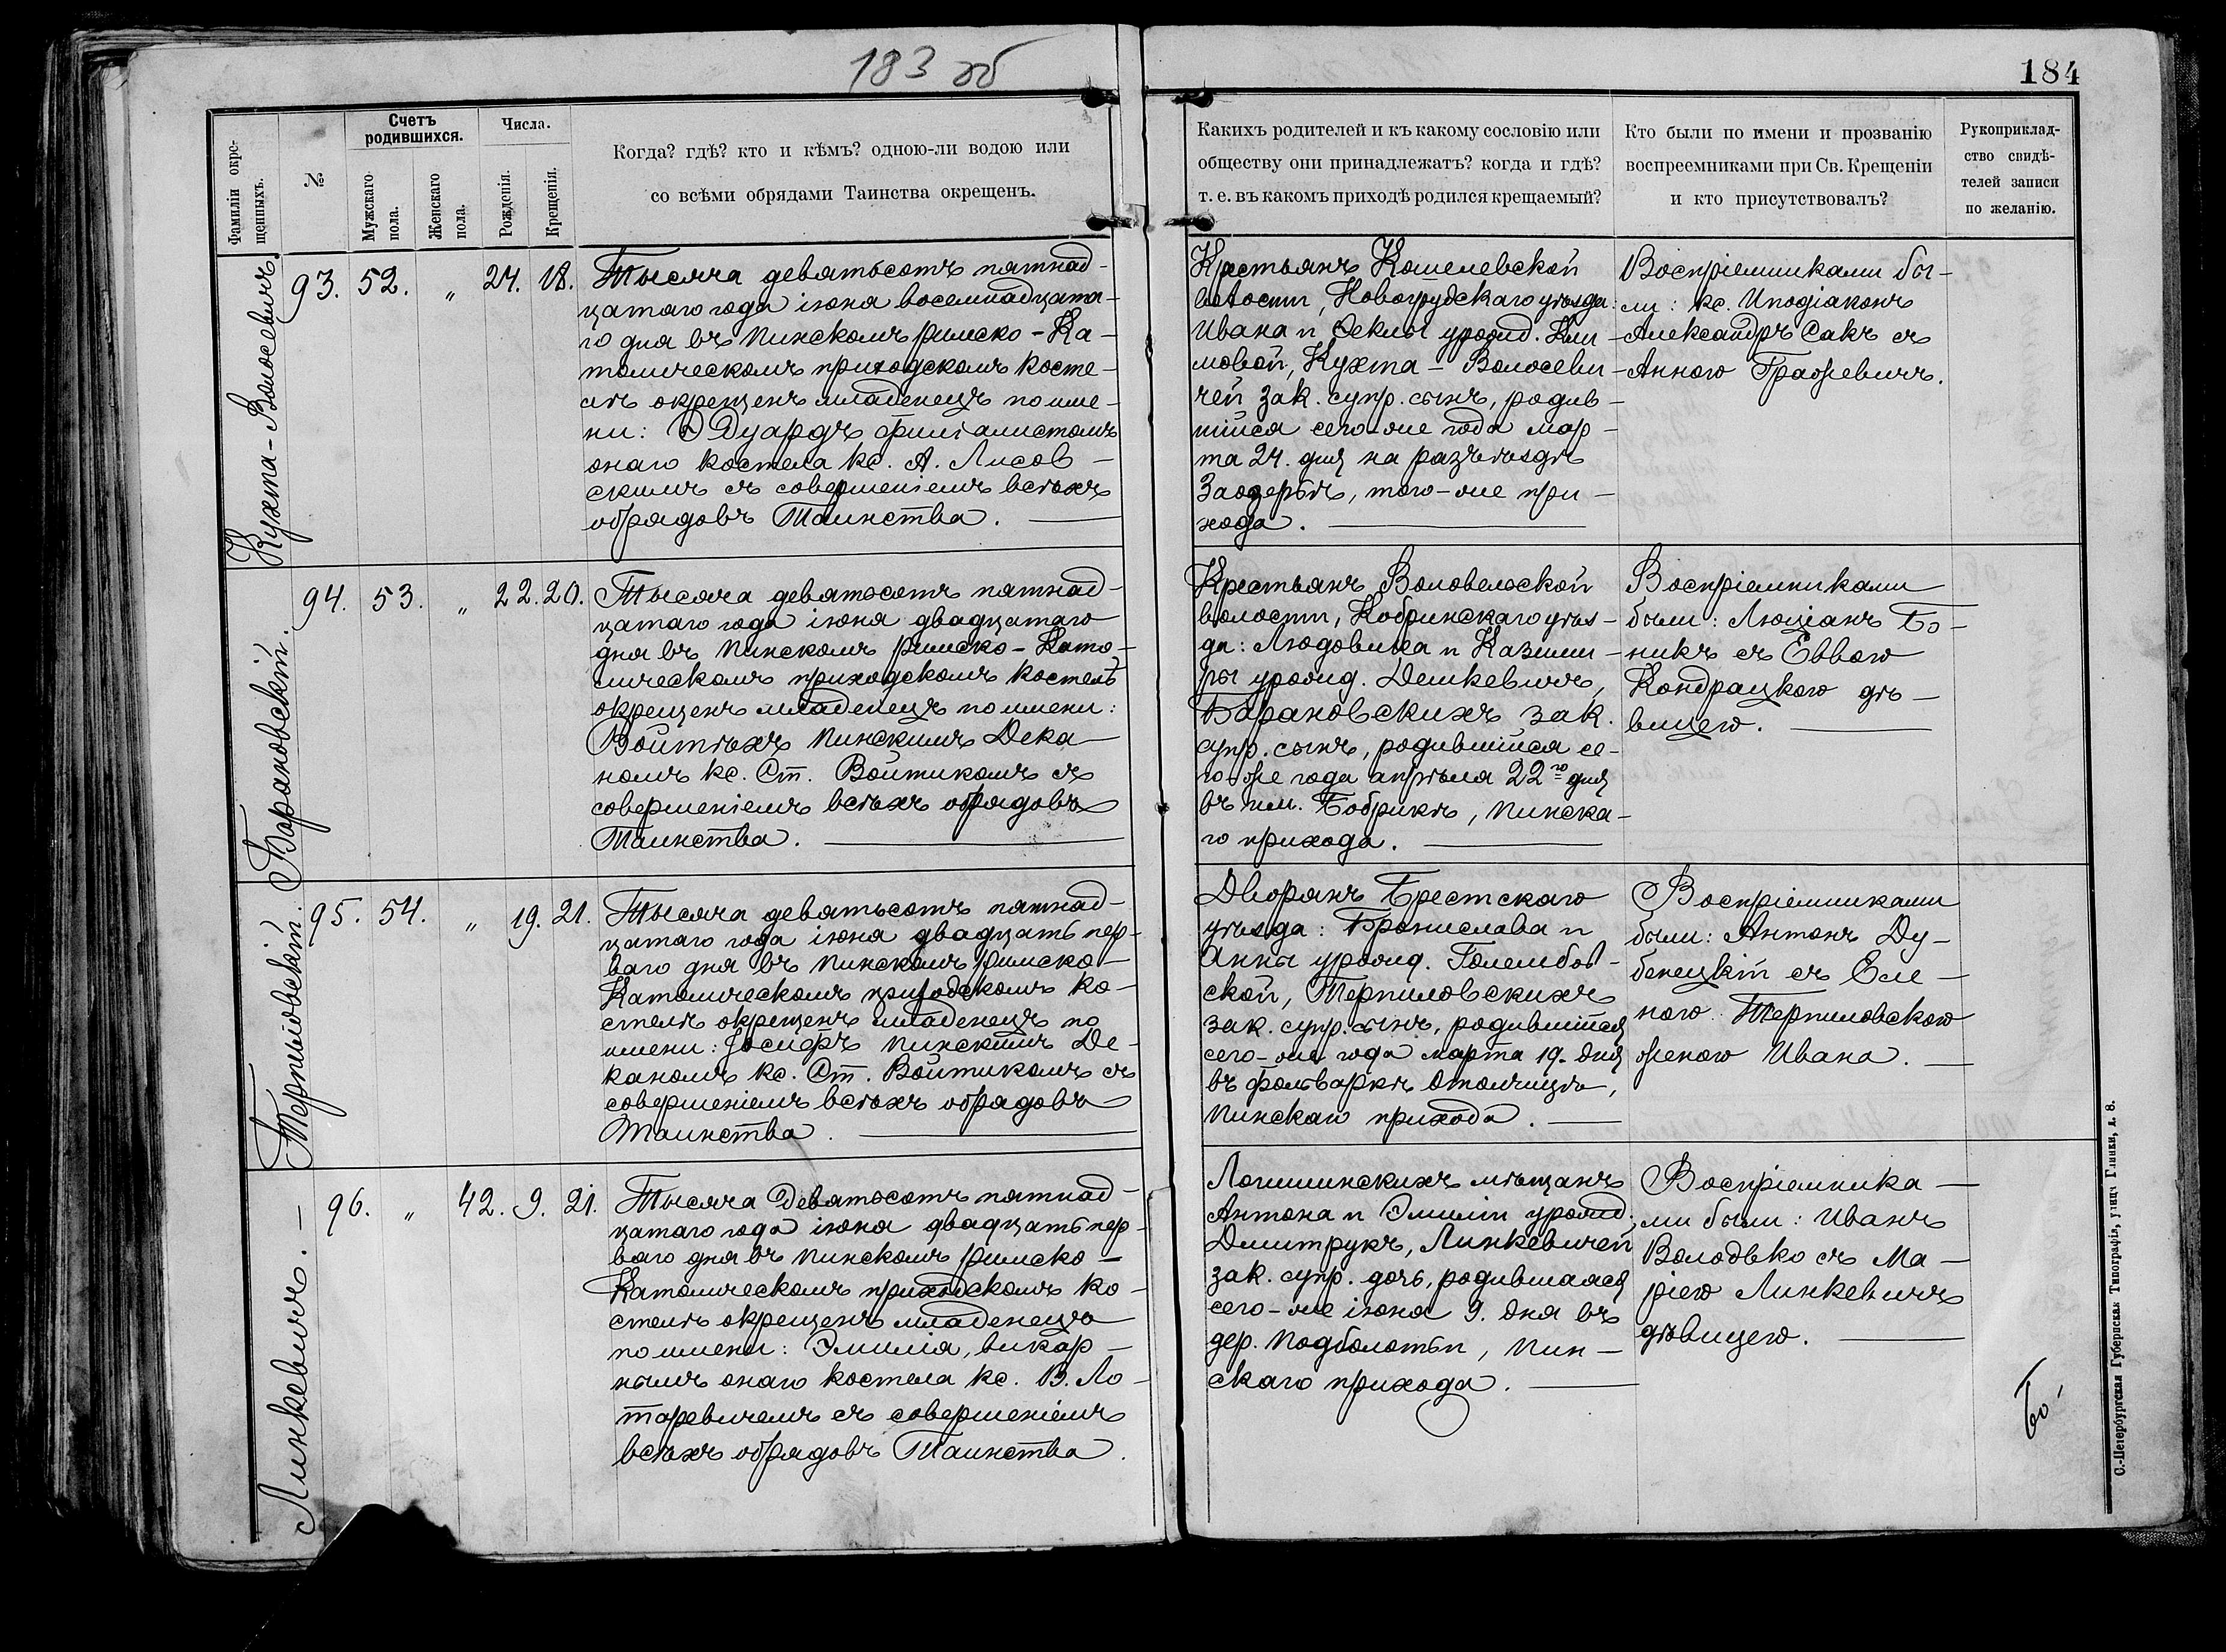 183 об
184
Фамиліи окре-
щенныхъ.
№
Счетъ
родившихся.
Мужскаго
пола.
Женскаго
пола.
Числа.
Рожденія.
Крещенія.
Когда? гдѣ? кто и кѣмъ? одною-ли водою или
со всѣми обрядами Таинства окрещенъ.
Какихъ родителей и къ какому сословію или
обществу они принадлежатъ? когда и гдѣ?
т. е. въ какомъ приходѣ родился крещаемый?
Кто были по имени и прозванію
воспреемниками при Св. Крещеніи
и кто присутствовалъ?
Рукоприклад-
ство свидѣ-
телей записи
по желанію.
Кухта-Волосевичъ
93. 52. „ 24. 18.
Тысяча девятьсотъ пятнад-
цатаго года іюня восемнадцата-
го дня въ Пинскомъ Римско-Ка-
толическомъ приходскомъ косте-
лѣ окрещенъ младенецъ по име-
ни: Эдуардъ, филіалистомъ
онаго костела кс. А. Лисов-
скимъ съ совершеніемъ всѣхъ
обрядовъ Таинства.
Крестьянъ Кошелевской
волости, Новогрудскаго уѣзда:
Ивана и Феклы урожд. Кли-
мовой, Кухта-Волосеви-
чей зак. супр. сынъ, родив-
шійся сего-же года мар-
та 24. дня на разъѣздѣ
Заозерьѣ, того-же при-
хода.
Воспріемниками бы-
ли: кс. Иподіаконъ
Александръ Сакъ съ
Анною Гражевичъ.
Барановскій.
94. 53. „ 22. 20.
Тысяча девятьсотъ пятнад-
цатаго года іюня двадцатаго
дня въ Пинскомъ Римско-Като-
лическомъ приходскомъ костелѣ
окрещенъ младенецъ по имени:
Войтѣхъ Пинскимъ Дека-
номъ кс. Ст. Войтикомъ съ
совершеніемъ всѣхъ обрядовъ
Таинства.
Крестьянъ Воловельской
волости, Кобринскаго уѣз-
да: Людовика и Казими-
ры урожд. Дешкевичъ,
Барановскихъ зак.
супр. сынъ, родившійся се-
го-же года апрѣля 22го дня
въ им. Бобрикѣ, Пинска-
го прихода.
Воспріемниками
были: Люціанъ Бо-
никъ съ Еввою
Кондрацкою дѣ-
вицею.
Терпиловскій.
95. 54. „ 19. 21.
Тысяча девятьсотъ пятнад-
цатаго года іюня двадцать пер-
ваго дня въ Пинскомъ Римско-
Католическомъ приходскомъ ко-
стелѣ окрещенъ младенецъ по
имени: Іосифъ Пинскимъ Де-
каномъ кс. Ст. Войтикомъ съ
совершеніемъ всѣхъ обрядовъ
Таинства.
Дворянъ Брестскаго
уѣзда: Бронислава и
Анны урожд. Голембов-
ской, Терпиловскихъ
зак. супр. сынъ, родившійся
сего-же года марта 19. дня
въ фольваркѣ Отолчицѣ,
Пинскаго прихода.
Воспріемниками
были: Антонъ Ду-
бенецкій съ Еле-
ною Терпиловскою
женою Ивана.
Линкевичъ.
96. „ 42. 9. 21.
Тысяча Девятьсотъ пятнад-
цатаго года іюня двадцать пер-
ваго дня въ Пинскомъ Римско-
Католическомъ приходскомъ ко-
стелѣ окрещенъ младенецъ
по имени: Эмилія, викар-
нымъ онаго костела кс. В. Ло-
таревичемъ съ совершеніемъ
всѣхъ обрядовъ Таинства.
Логишинскихъ мѣщанъ
Антона и Эмиліи урожд.
Дмитрукъ, Линкевичей
зак. супр. дочь, родившаяся
сего-же іюня 9. дня въ
дер. Подболотьи, Пин-
скаго прихода.
Воспріемника-
ми были: Иванъ
Володько съ Ма-
ріею Линкевичъ
дѣвицею.
С.-Петербургская Губернская Типографія, улица Глинки, д. 8.